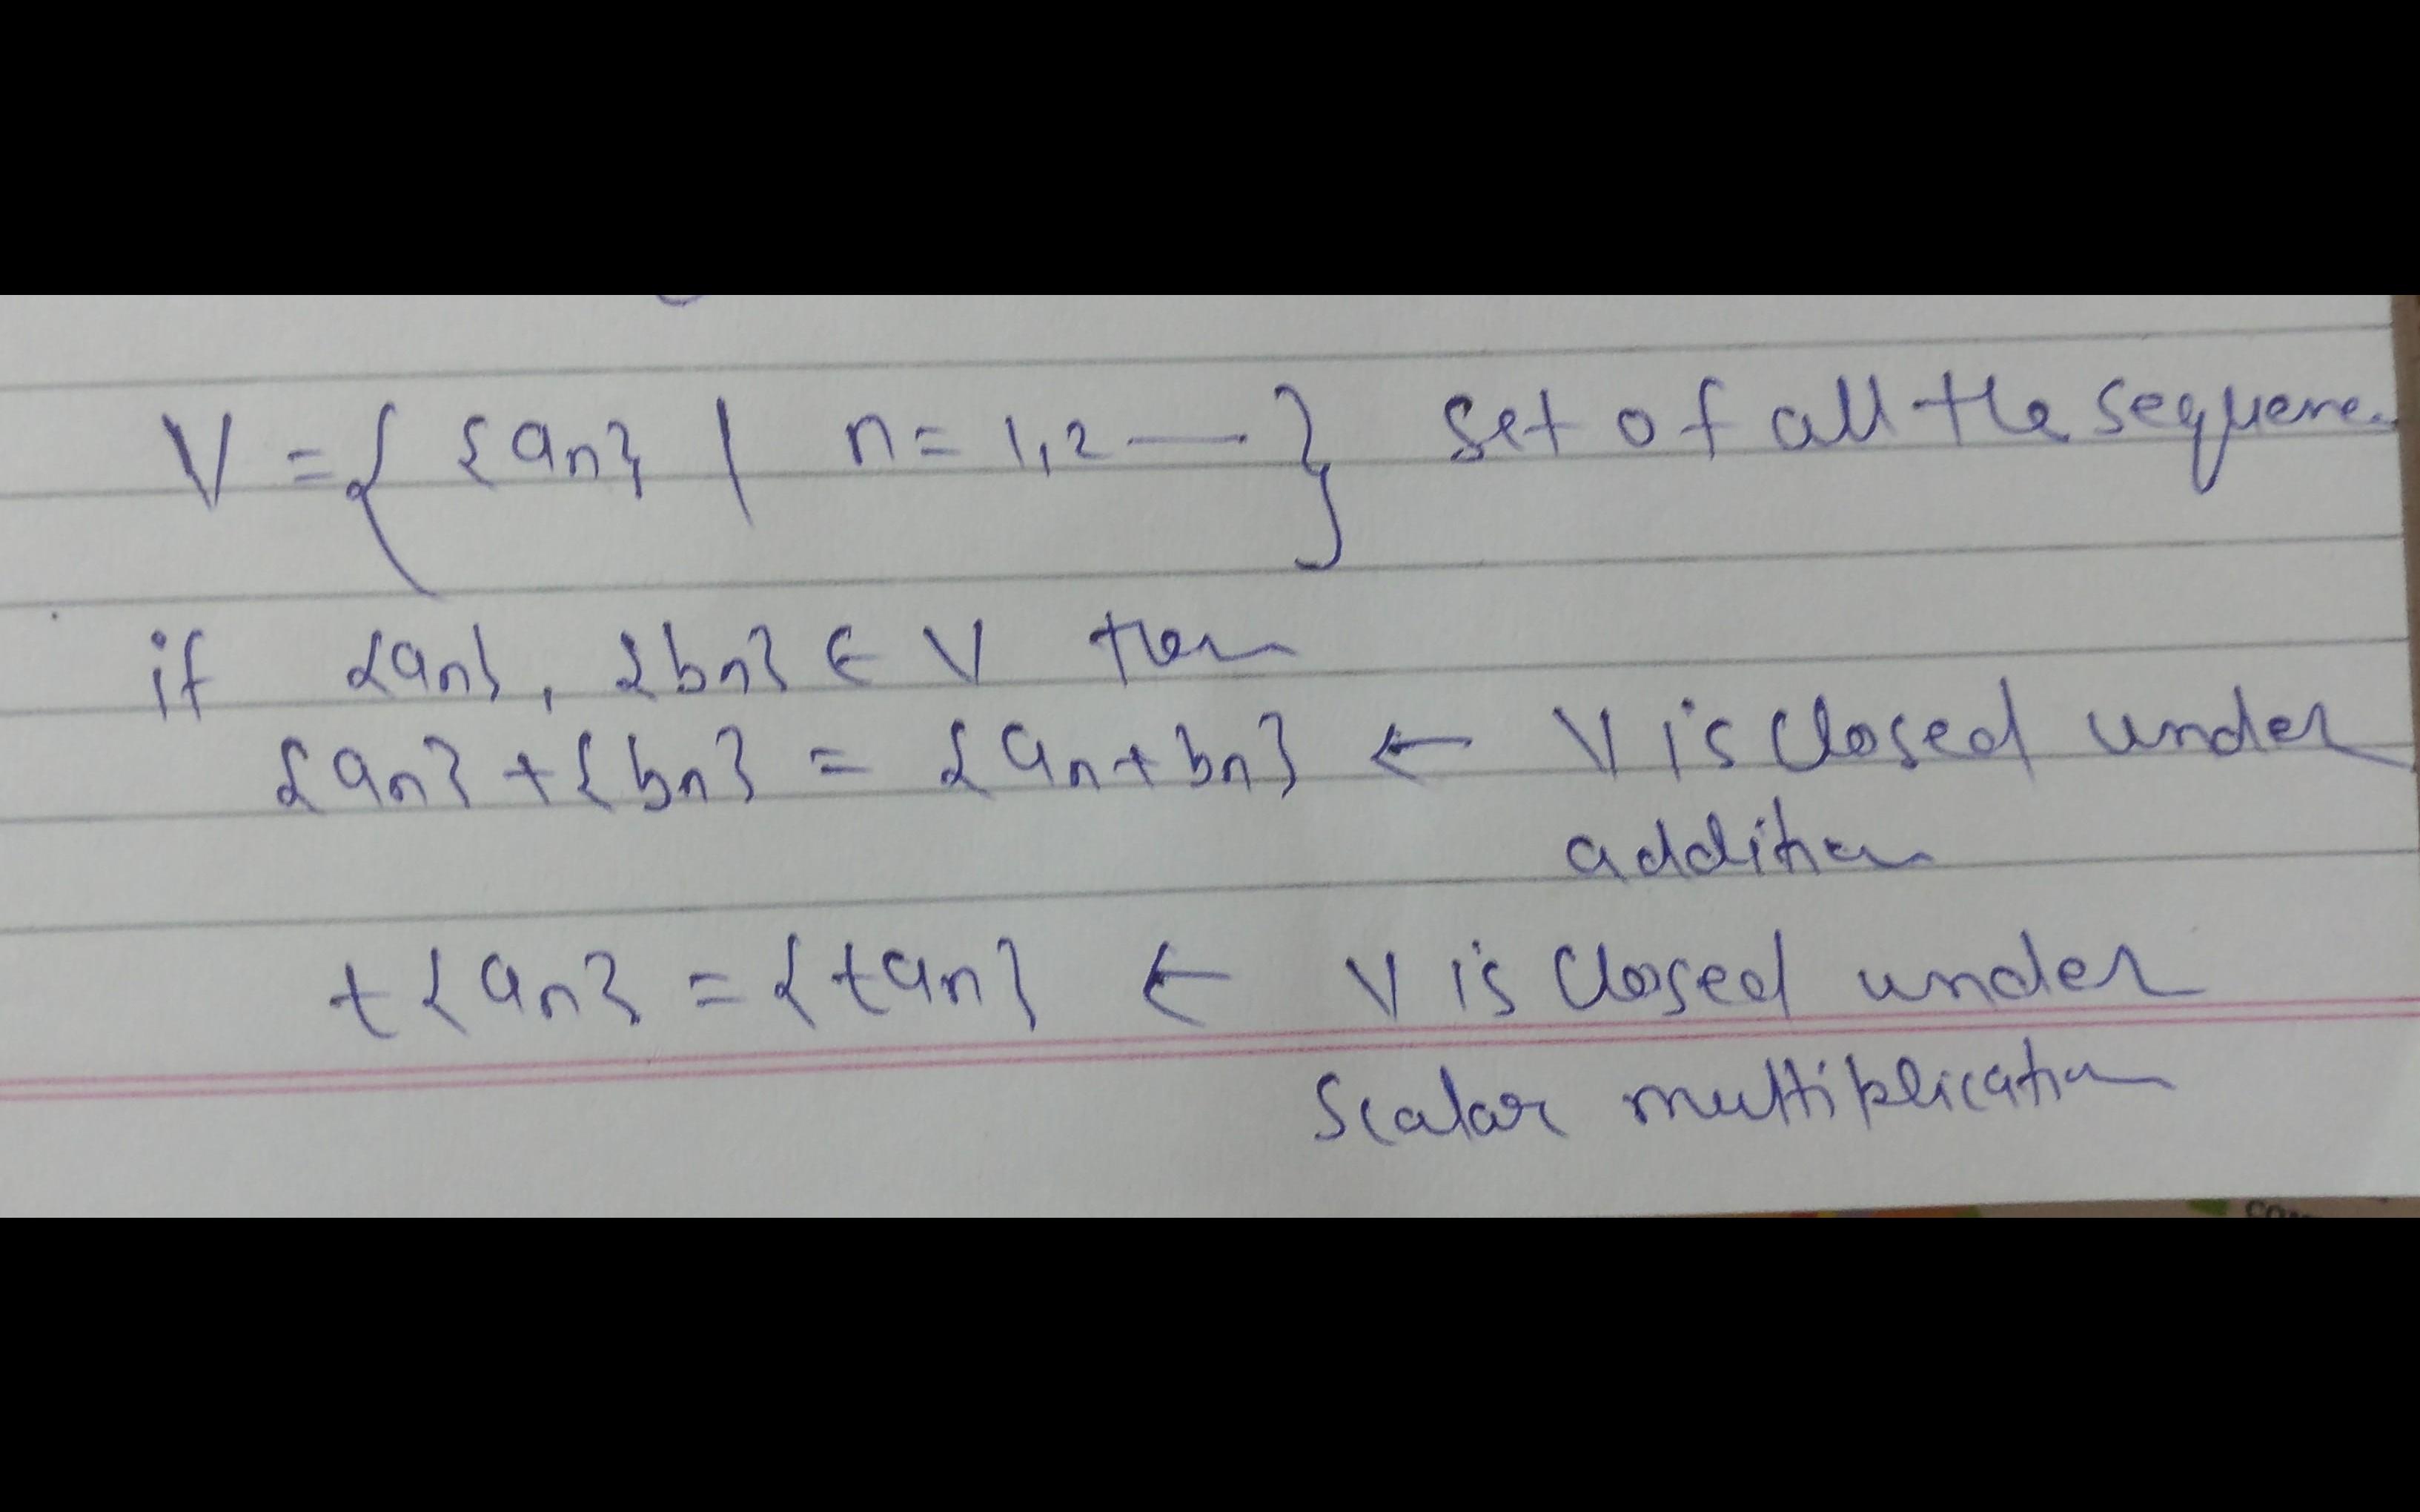 V = { {an} | n = 1,2 — } Set of all the sequence
if {an}, {bn} ∈ V then
{an} + {bn} = {an + bn} ← V is closed under
addition
t{an} = {tan} ← V is closed under
Scalar multiplication